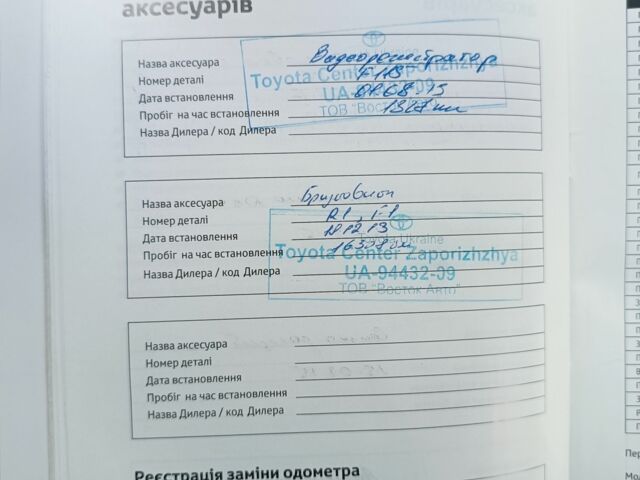 аксесуарів
Назва аксесуара Видеорегистратор
Номер деталі F118
Дата встановлення
Пробіг на час встановлення
Назва Дилера / код Дилера
Toyota Center Zaporizhzhya
ТОВ "Восток
Назва аксесуара
Номер деталі R1, F1
Дата встановлення
Пробіг на час встановлення
Назва Дилера / код Дилера
Toyota Ukraine
Toyota Center Zaporizhzhya
UA-94432-09
ТОВ "Восток Авто"
Назва аксесуара
Номер деталі
Дата встановлення
Пробіг на час встановлення
Назва Дилера / код Дилера
Реєстрація заміни одометра